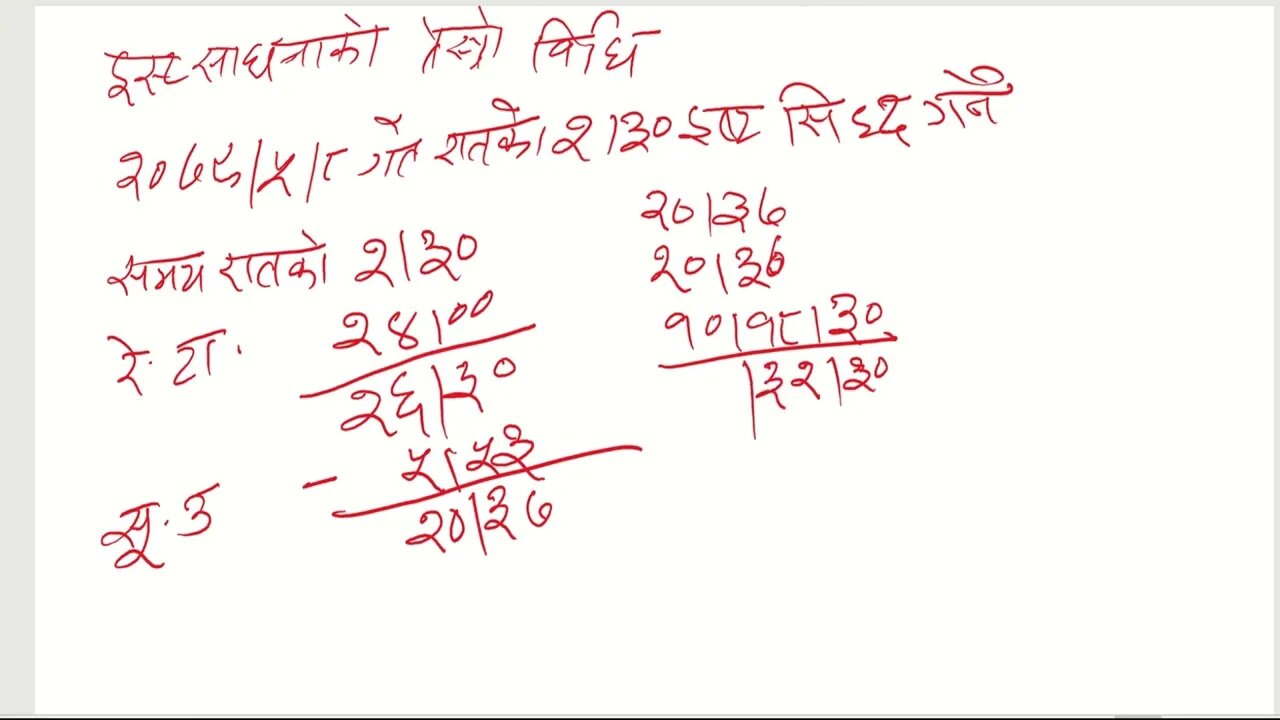 इस्ट साधनाको तेस्रो विधि
२०७८/५/८ गते रातको २।३० इष्ट सिद्द गर्ने
समय रातको २।३०
रे. टा. २४।००
२६।३०
सू. उ - ५।५३
२०।३७
२०।३७
२०।३७
१०।१८।३०
।३२।३०